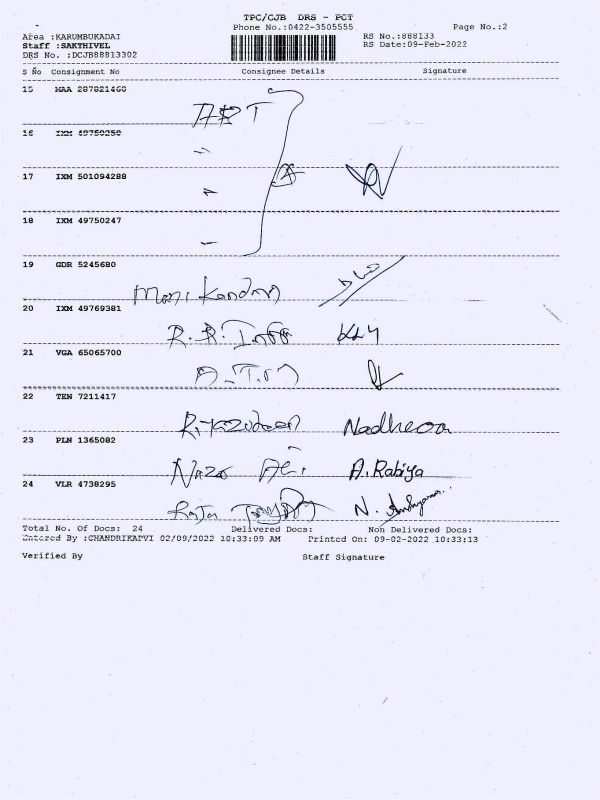 TPC/CJB DRS - PCT
Phone No.:0422-3505555 Page No.:2
Area :KARUMBUKADAI RS No.:888133
Staff :SAKTHIVEL RS Date:09-Feb-2022
DRS No. :DCJB88813302
S No Consignment No Consignee Details Signature
15 MAA 287821460
ART
16 IXM 49750250
17 IXM 501094288
18 IXM 49750247
19 GDR 5245680
Manikandan
20 IXM 49769381
R.R. Info
21 VGA 65065700
22 TEN 7211417
Nadheea
23 PLN 1365082
A. Rabiya
24 VLR 4738295
Raja N.
Total No. Of Docs: 24 Delivered Docs: Non Delivered Docs:
Entered By :CHANDRIKAPVI 02/09/2022 10:33:09 AM Printed On: 09-02-2022 10:33:13
Verified By Staff Signature